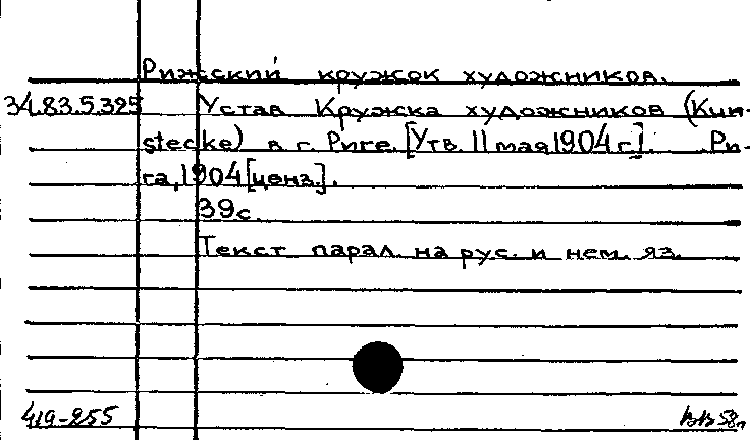 Рижский кружок художников.
34.83.5.325 Устав Кружка художников (Kun-
stecke) в г. Риге. [Утв. 11 мая 1904 г.]. Ри-
га, 1904 [ценз.].
39с.
Текст парал. на рус. и нем. яз.
419-255